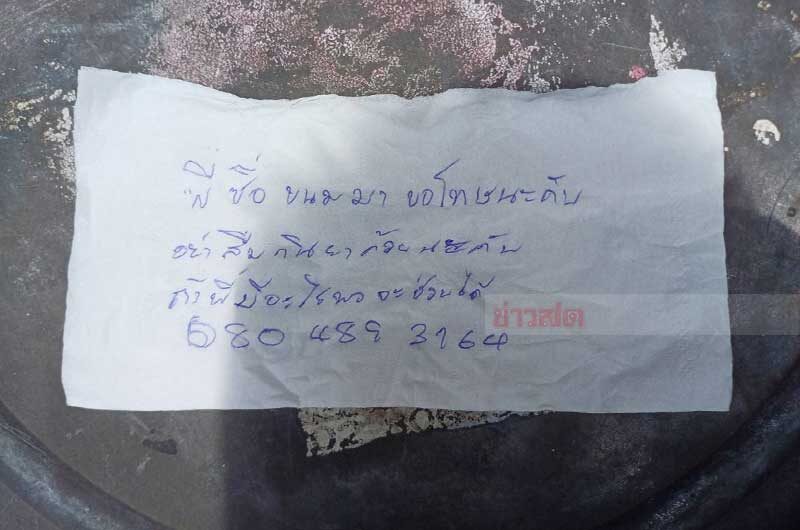 พี่ ซื้อ ขนม มา ขอโทษนะคับ
อย่าลืม กินยา ด้วยนะคับ
ถ้าพี่มีอะไรพอจะช่วยได้
080 489 3164
ข่าวสด